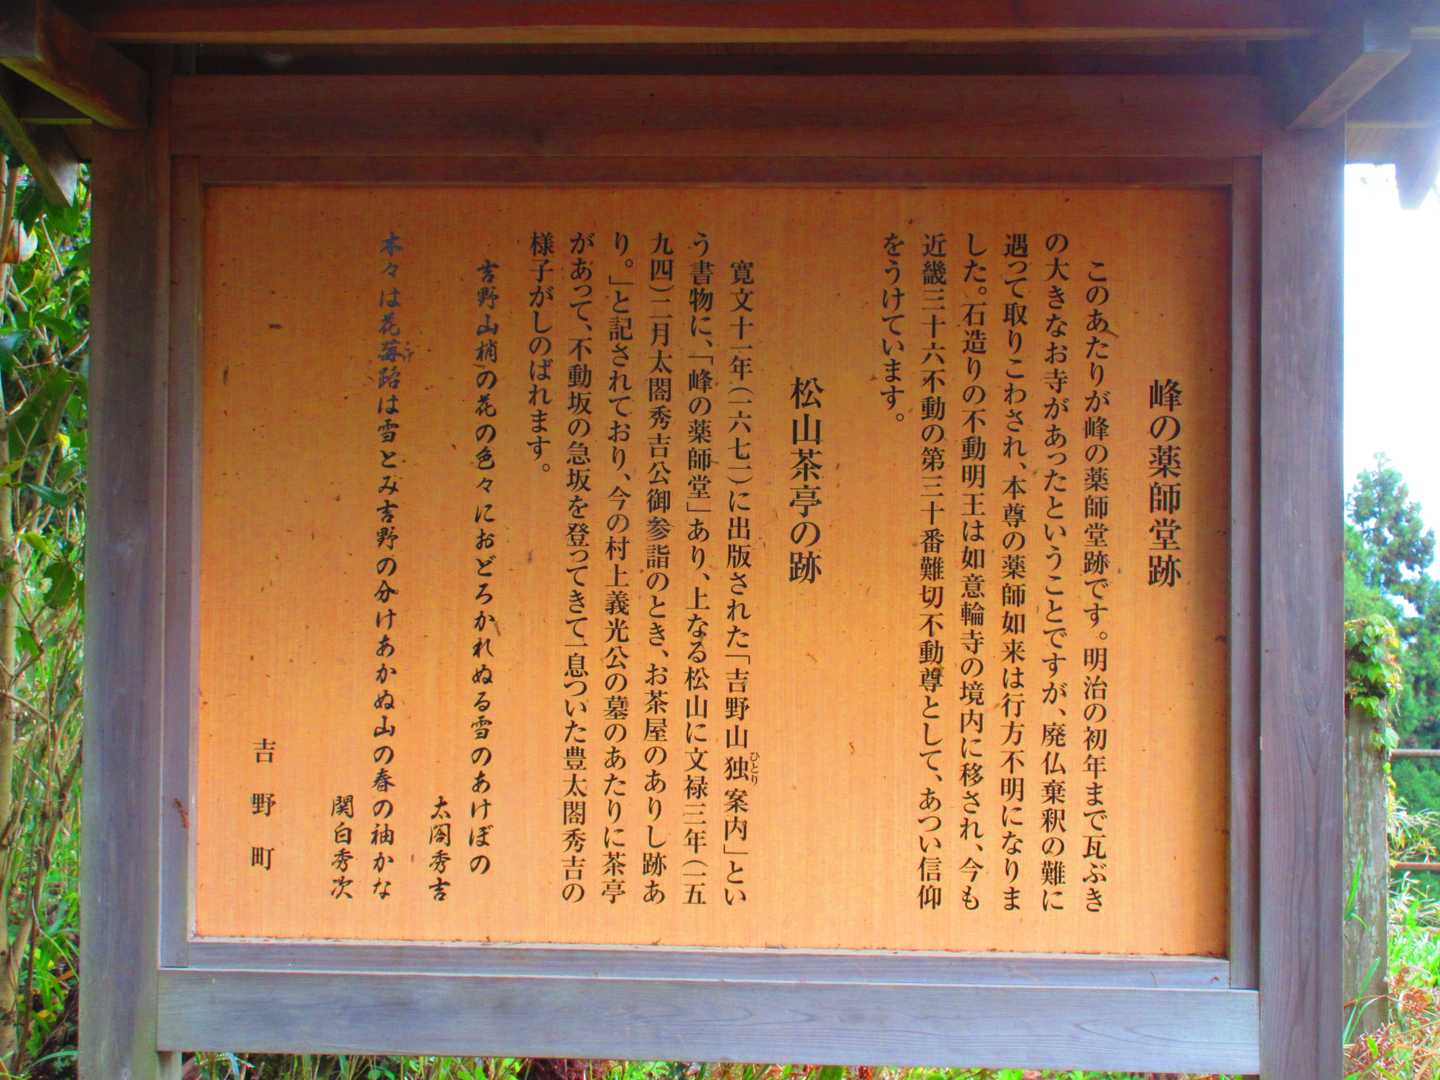 峰の薬師堂跡
このあたりが峰の薬師堂跡です。明治の初年まで瓦ぶき
の大きなお寺があったということですが、廃仏棄釈の難に
遇って取りこわされ、本尊の薬師如来は行方不明になりま
した。石造りの不動明王は如意輪寺の境内に移され、今も
近畿三十六不動の第三十番難切不動尊として、あつい信仰
をうけています。
松山茶亭の跡
寛文十一年(一六七一)に出版された「吉野山独案内」とい
ひとり
う書物に、「峰の薬師堂」あり、上なる松山に文禄三年(一五
九四)二月太閤秀吉公御参詣のとき、お茶屋のありし跡あ
り。」と記されており、今の村上義光公の墓のあたりに茶亭
があって、不動坂の急坂を登ってきて一息ついた豊太閤秀吉の
様子がしのばれます。
吉野山梢の花の色々におどろかれぬる雪のあけぼの
太閤秀吉
木々は花苺路は雪とみ吉野の分けあかぬ山の春の袖かな
関白秀次
吉野町